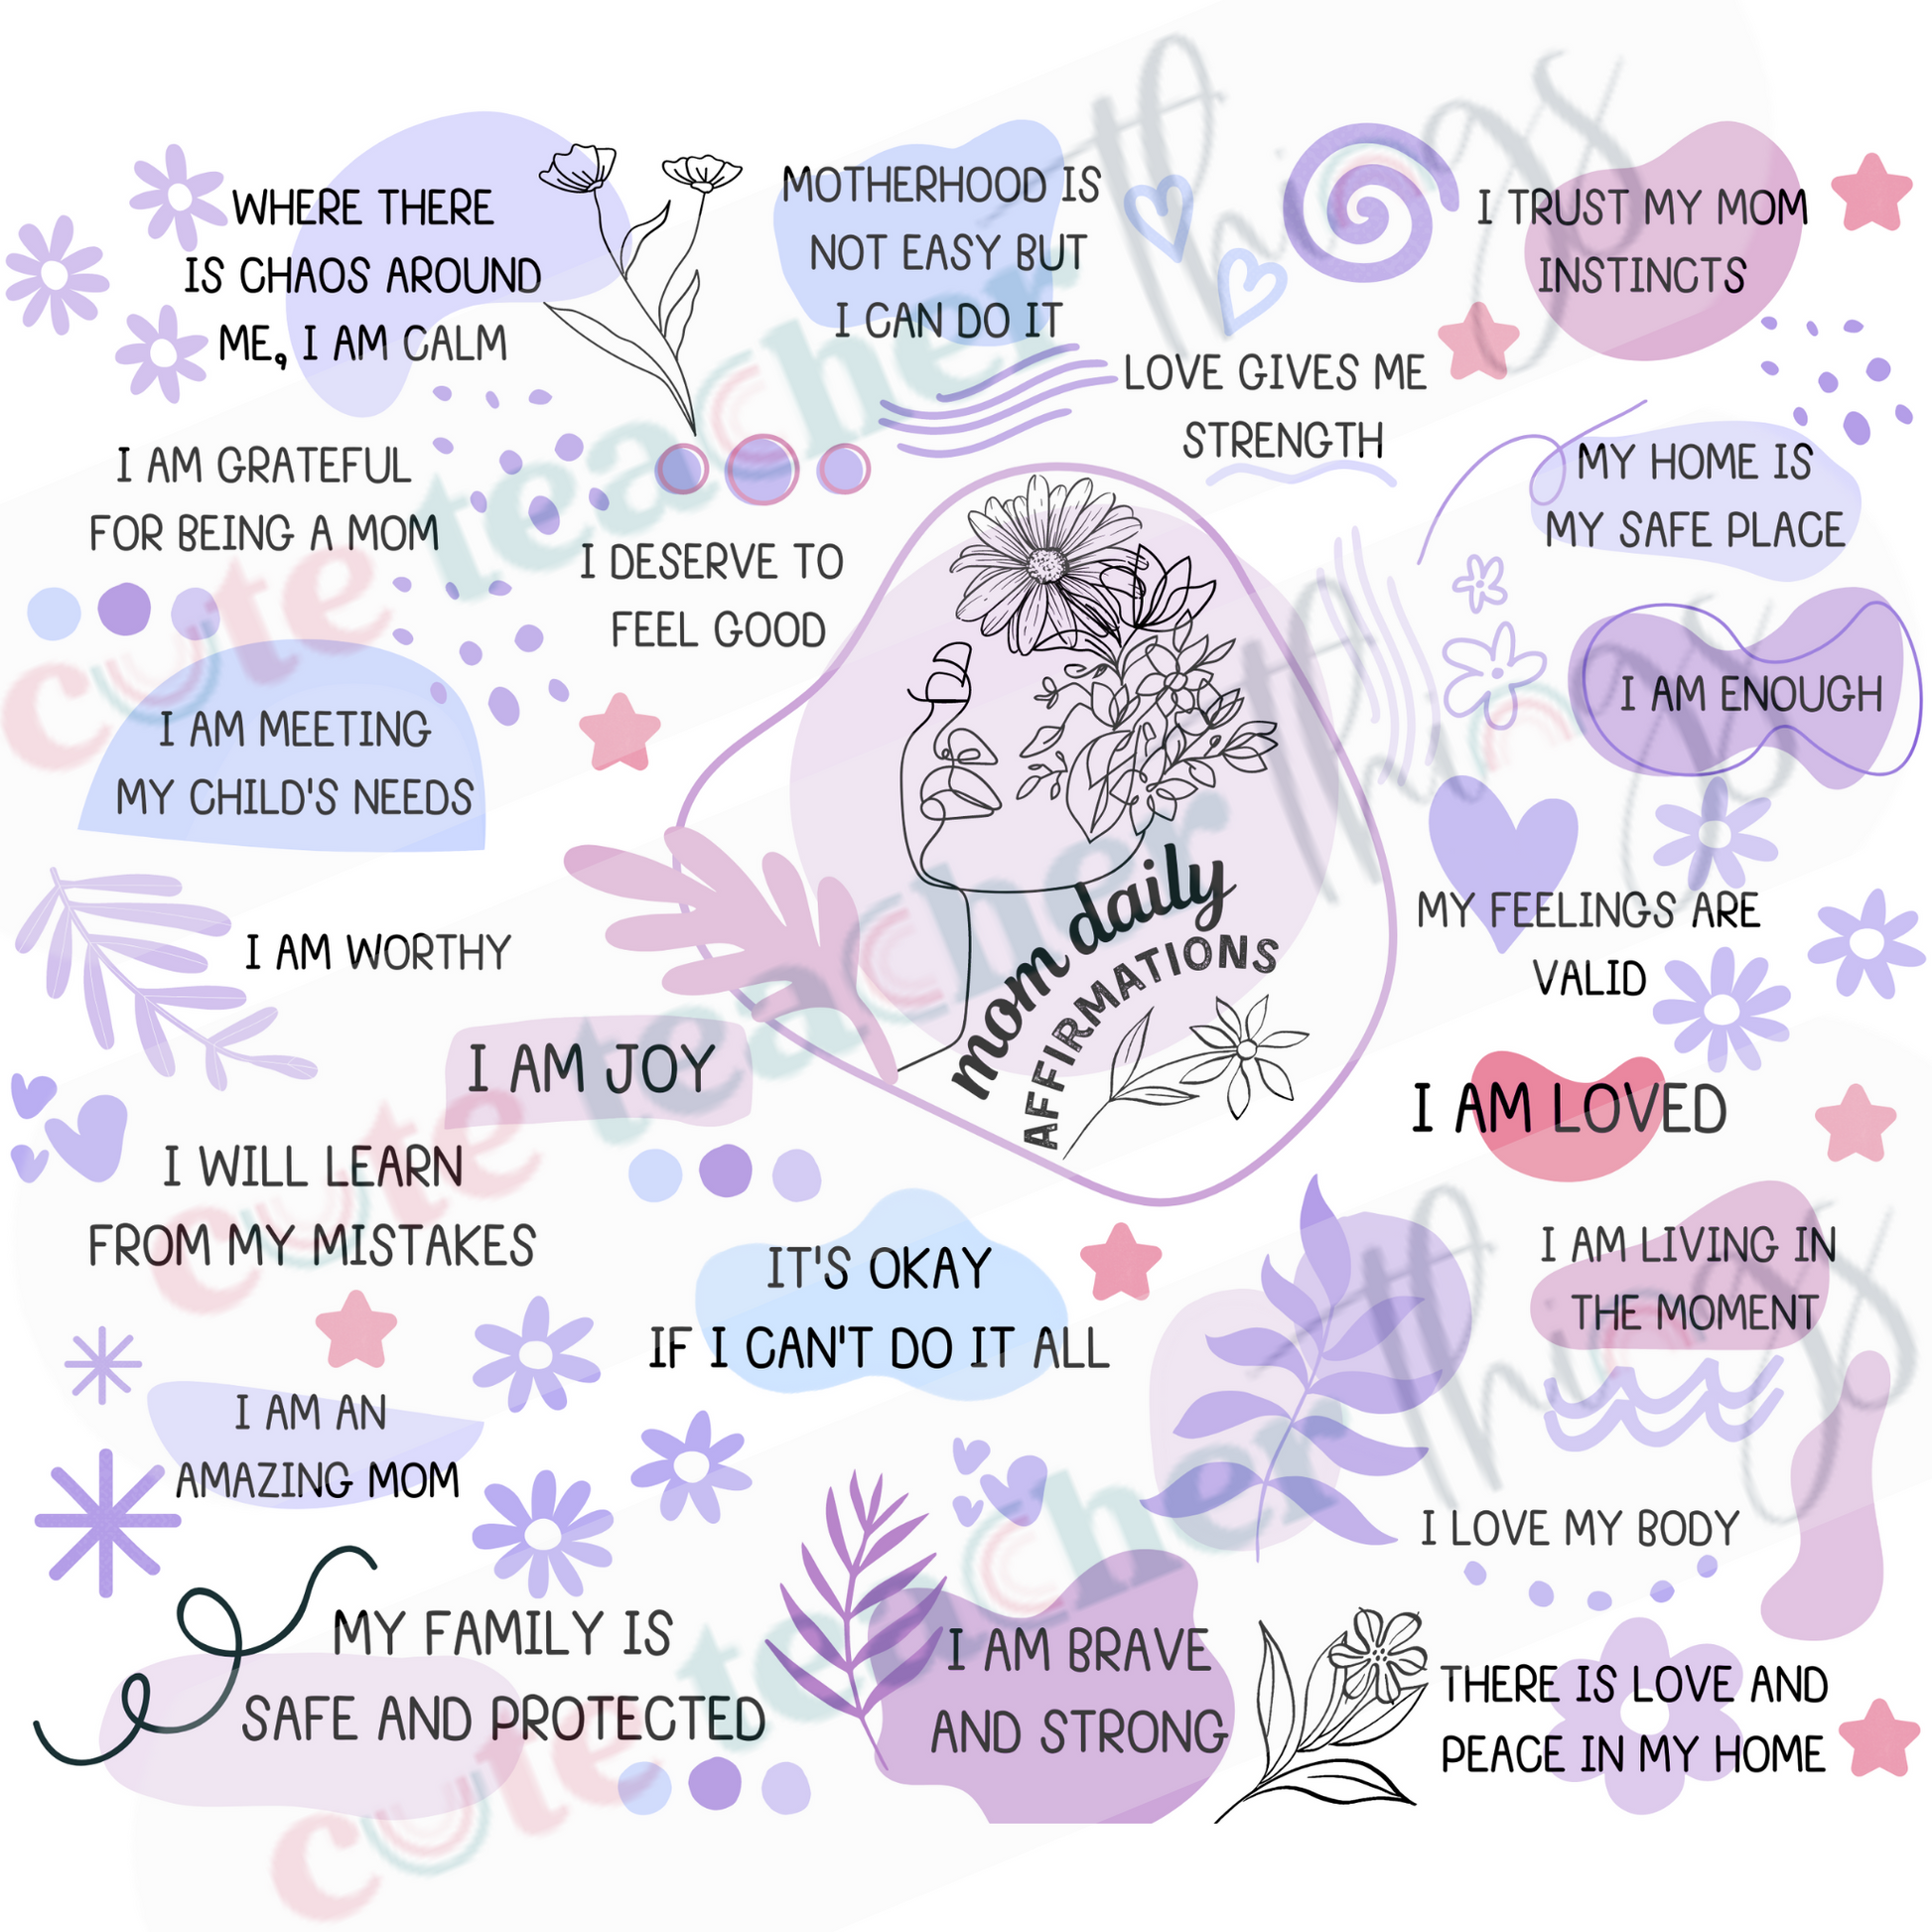 WHERE THERE
IS CHAOS AROUND
ME, I AM CALM
MOTHERHOOD IS
NOT EASY BUT
I CAN DO IT
I TRUST MY MOM
INSTINCTS
LOVE GIVES ME
STRENGTH
I AM GRATEFUL
FOR BEING A MOM
MY HOME IS
MY SAFE PLACE
I DESERVE TO
FEEL GOOD
I AM ENOUGH
I AM MEETING
MY CHILD'S NEEDS
mom daily
AFFIRMATIONS
I AM WORTHY
MY FEELINGS ARE
VALID
I AM JOY
I AM LOVED
I WILL LEARN
FROM MY MISTAKES
IT'S OKAY
IF I CAN'T DO IT ALL
I AM LIVING IN
THE MOMENT
I AM AN
AMAZING MOM
I LOVE MY BODY
MY FAMILY IS
SAFE AND PROTECTED
I AM BRAVE
AND STRONG
THERE IS LOVE AND
PEACE IN MY HOME
cute teacher things
cute teacher things
cute teacher things